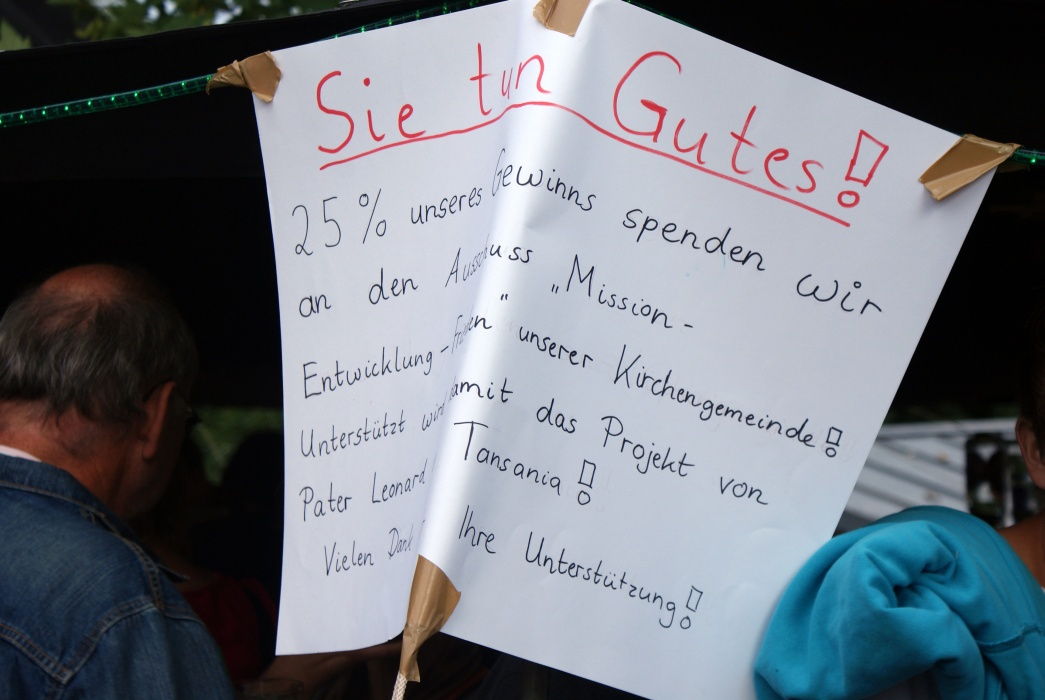 Sie tun Gutes!
25% unseres Gewinns spenden wir
an den Ausschuss „Mission-
Entwicklung-Frieden“ unserer Kirchengemeinde!
Unterstützt wird damit das Projekt von
Pater Leonard Tansania!
Vielen Dank Ihre Unterstützung!